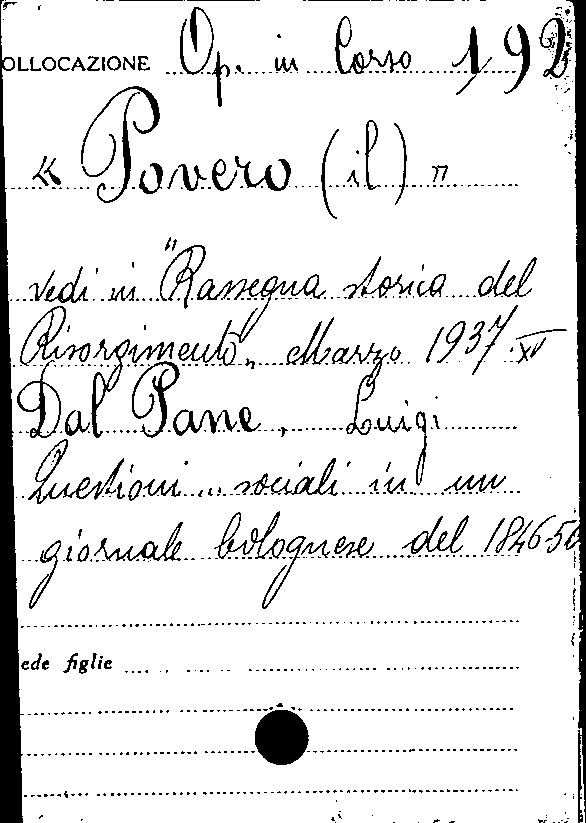 OLLOCAZIONE Op. in Corso 192
« Povero (il) »
vedi in "Rassegna storica del
Risorgimento„ Marzo 1937. XV
Dal Pane, Luigi
Questioni ... sociali in un
giornale bolognese del 1846-50
ede figlie